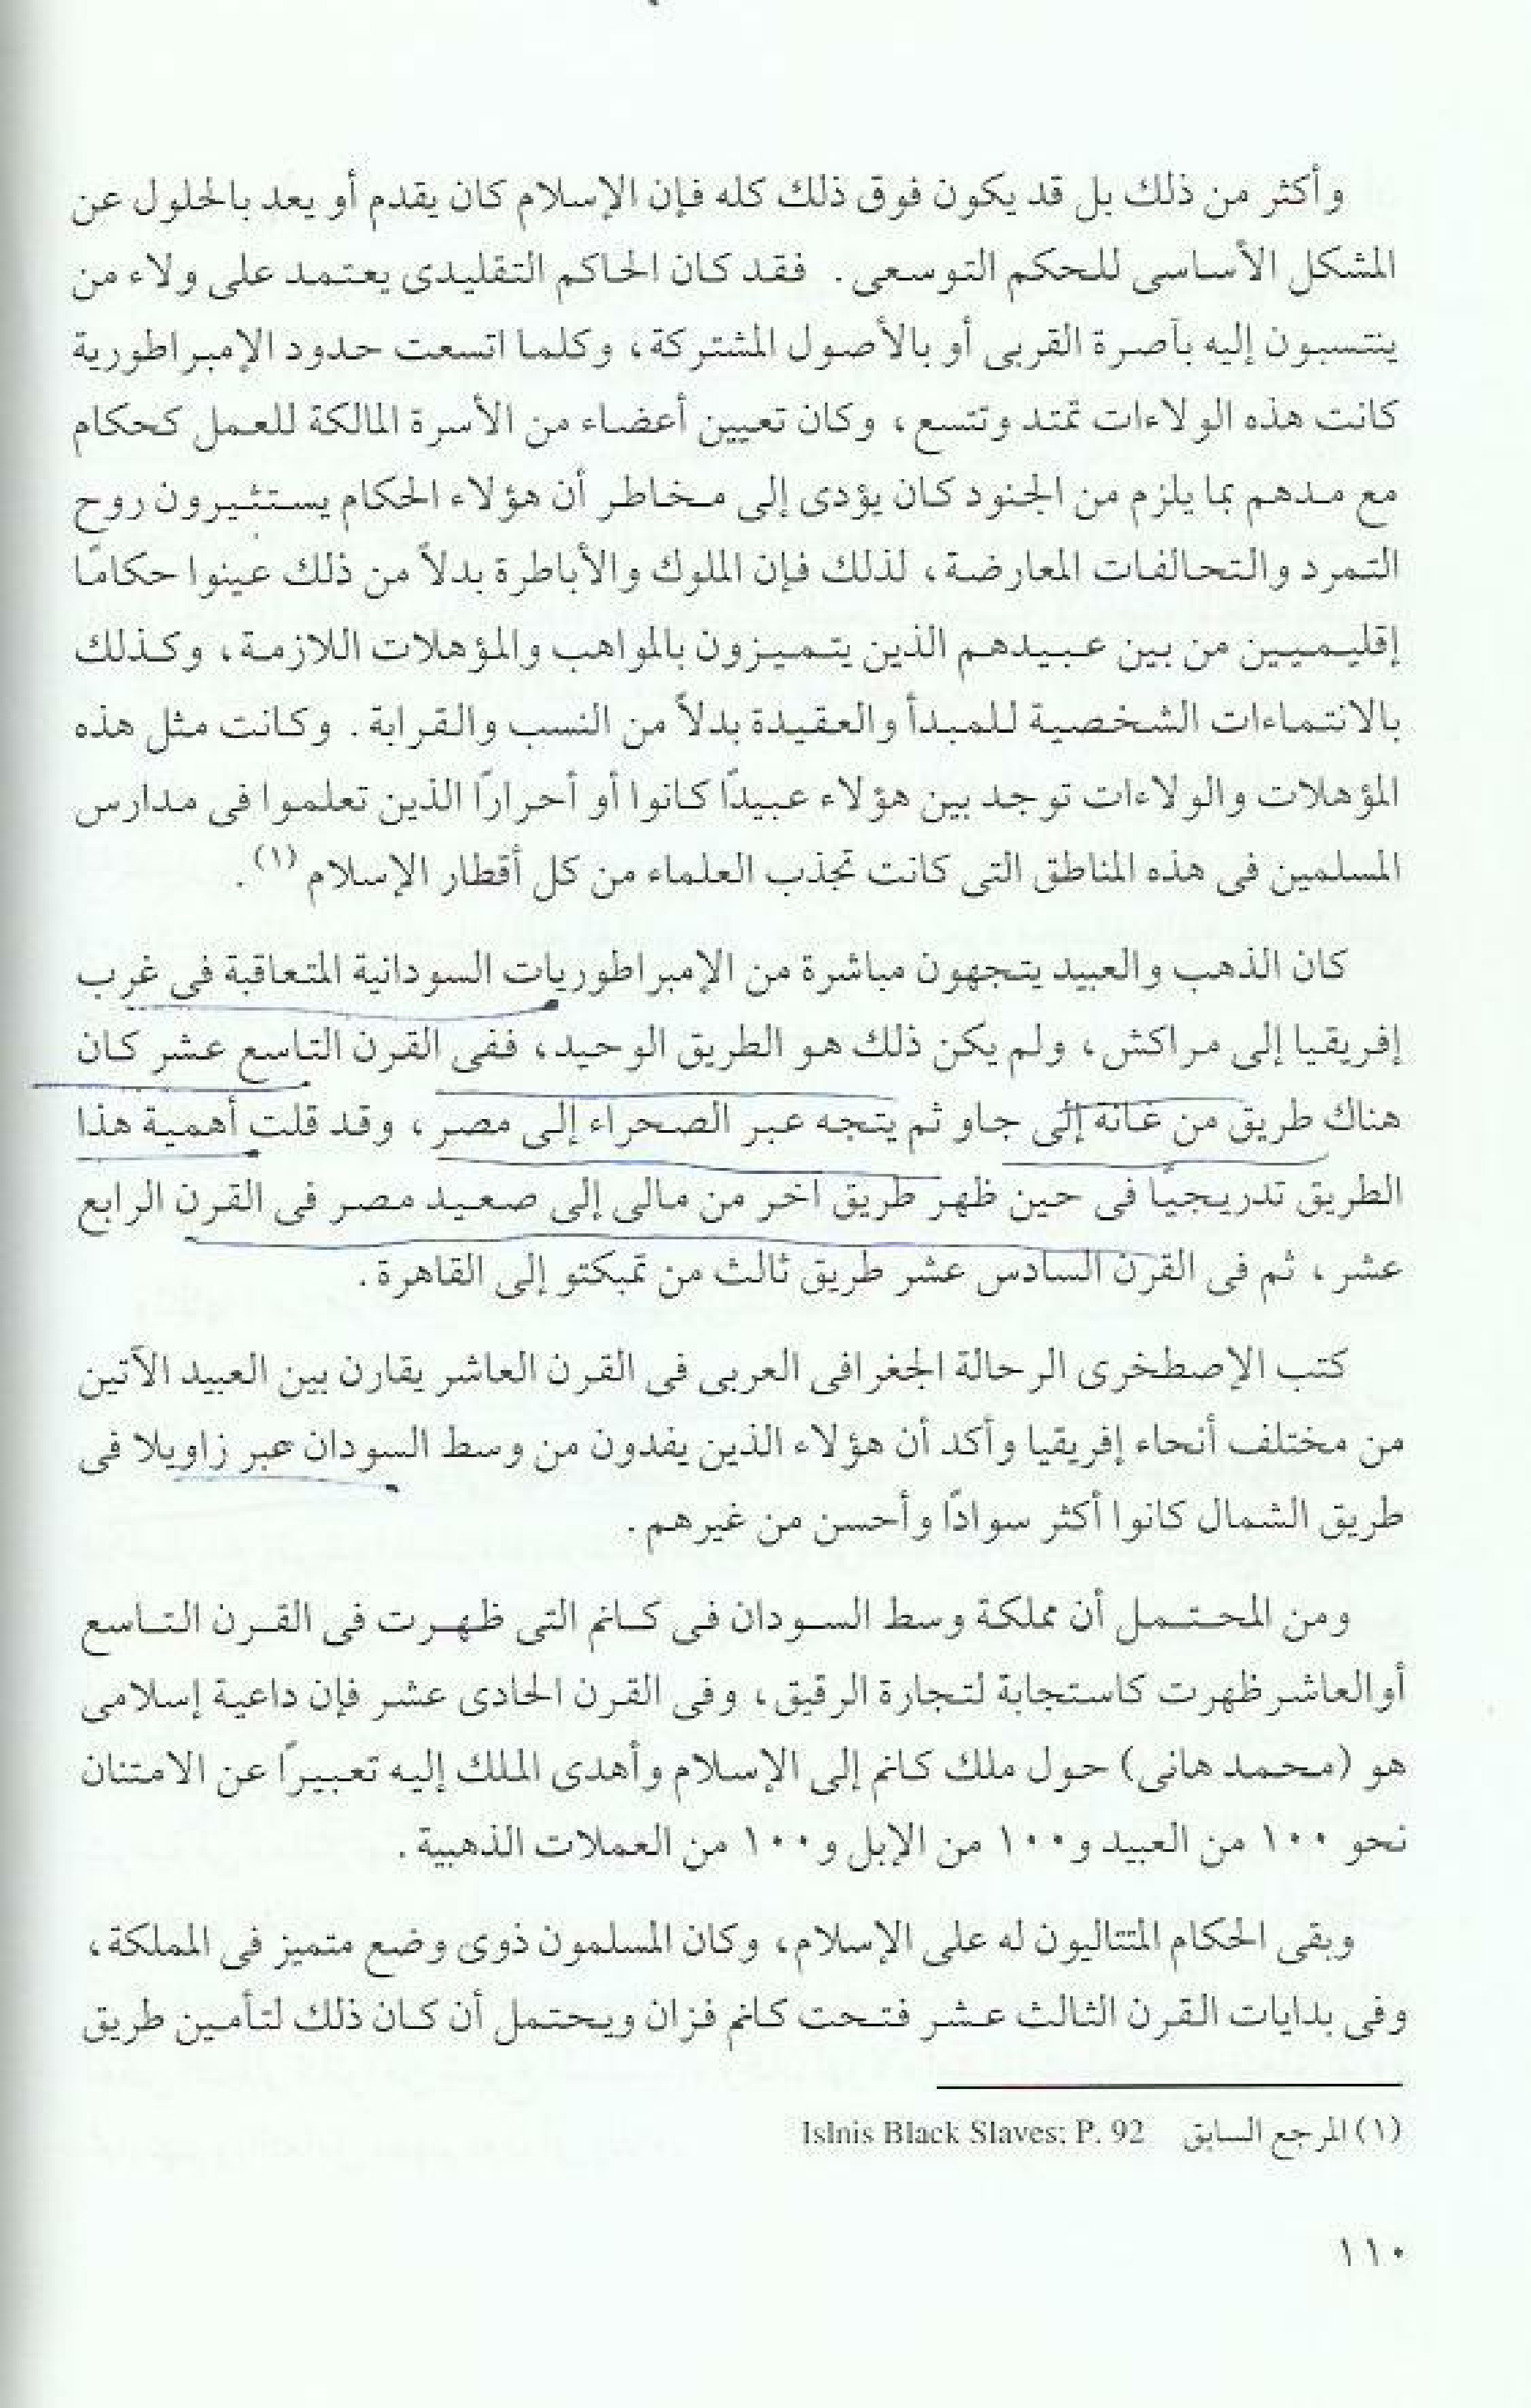 وأكثر من ذلك بل قد يكون فوق ذلك كله فإن الإسلام كان يقدم أو يعد بالحلول عن
المشكل الأساسى للحكم التوسعى . فقد كان الحاكم التقليدى يعتمد على ولاء من
ينتسبون إليه بآصرة القربى أو بالأصول المشتركة، وكلما اتسعت حدود الإمبراطورية
كانت هذه الولاءات تمتد وتتسع، وكان تعيين أعضاء من الأسرة المالكة للعمل كحكام
مع مدهم بما يلزم من الجنود كان يؤدى إلى مخاطر أن هؤلاء الحكام يستثيرون روح
التمرد والتحالفات المعارضة، لذلك فإن الملوك والأباطرة بدلاً من ذلك عينوا حكامًا
إقليميين من بين عبيدهم الذين يتميزون بالمواهب والمؤهلات اللازمة، وكذلك
بالانتماءات الشخصية للمبدأ والعقيدة بدلاً من النسب والقرابة . وكانت مثل هذه
المؤهلات والولاءات توجد بين هؤلاء عبيدًا كانوا أو أحرارًا الذين تعلموا فى مدارس
المسلمين فى هذه المناطق التى كانت تجذب العلماء من كل أقطار الإسلام (١) .
كان الذهب والعبيد يتجهون مباشرة من الإمبراطوريات السودانية المتعاقبة فى غرب
إفريقيا إلى مراكش، ولم يكن ذلك هو الطريق الوحيد، ففى القرن التاسع عشر كان
هناك طريق من غانه إلى جاو ثم يتجه عبر الصحراء إلى مصر، وقد قلت أهمية هذا
الطريق تدريجيًا فى حين ظهر طريق آخر من مالى إلى صعيد مصر فى القرن الرابع
عشر، ثم فى القرن السادس عشر طريق ثالث من تمبكتو إلى القاهرة .
كتب الإصطخرى الرحالة الجغرافى العربى فى القرن العاشر يقارن بين العبيد الآتين
من مختلف أنحاء إفريقيا وأكد أن هؤلاء الذين يفدون من وسط السودان عبر زاويلا فى
طريق الشمال كانوا أكثر سوادًا وأحسن من غيرهم .
ومن المحتمل أن مملكة وسط السودان فى كانم التى ظهرت فى القرن التاسع
أوالعاشر ظهرت كاستجابة لتجارة الرقيق، وفى القرن الحادى عشر فإن داعية إسلامى
هو (محمد هانى) حول ملك كانم إلى الإسلام وأهدى الملك إليه تعبيرًا عن الامتنان
نحو ١٠٠ من العبيد و١٠٠ من الإبل و١٠٠ من العملات الذهبية .
وبقى الحكام المتتاليون له على الإسلام، وكان المسلمون ذوى وضع متميز فى المملكة،
وفى بدايات القرن الثالث عشر فتحت كانم فزان ويحتمل أن كان ذلك لتأمين طريق
(١) المرجع السابق Islnis Black Slaves; P. 92
١١٠